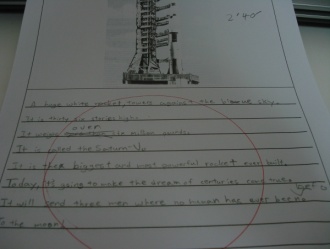 2'40"
A huge white rocket, towers against the blue sky.
It is thirty six stories high.
over
It weighs six million pounds.
It is called the Saturn V.
It is the biggest and most powerful rocket ever built.
Today, it's going to make the dream of centuries come
It will send three men where no human has ever been
to the moon!